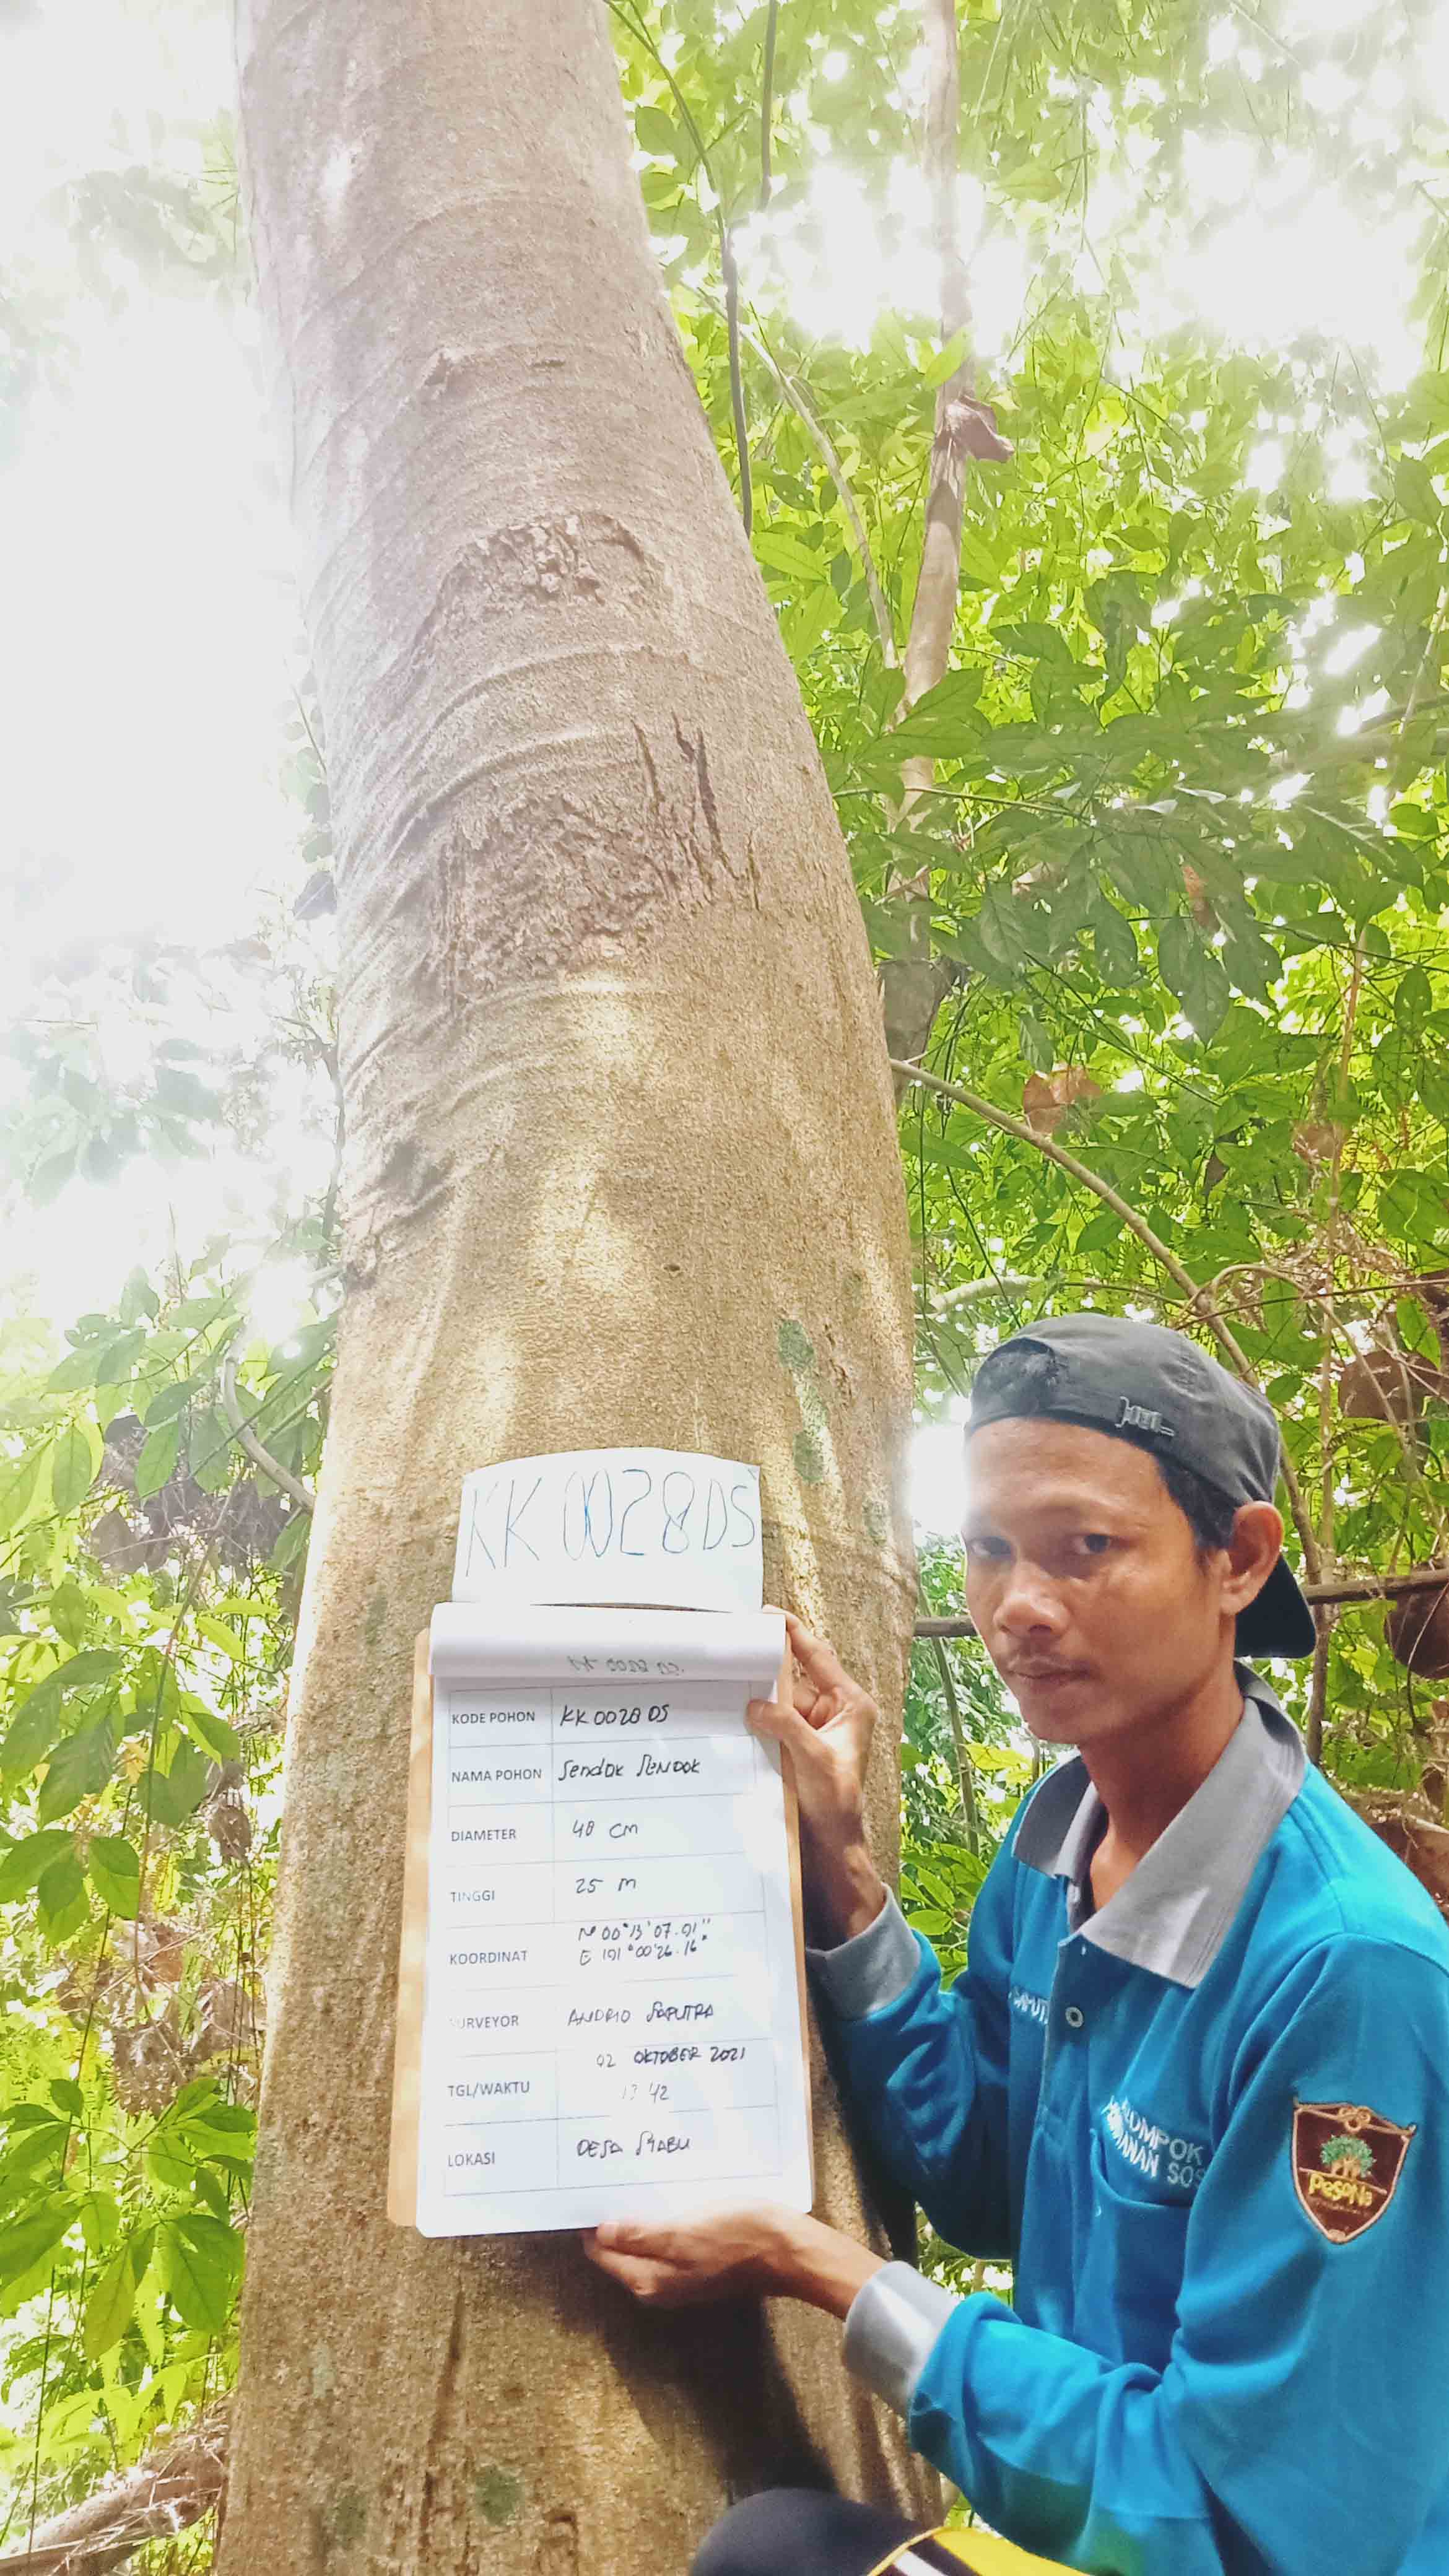 KK 0028 DS
KODE POHON KK 0028 DS
NAMA POHON Sendok Sendok
DIAMETER 48 cm
TINGGI 25 m
KOORDINAT N 00°13'07.91"
E 101°00'26.16"
SURVEYOR ANDRIO SAPUTRA
TGL/WAKTU 02 OKTOBER 2021
13 42
LOKASI DESA SIABU
PesoNa